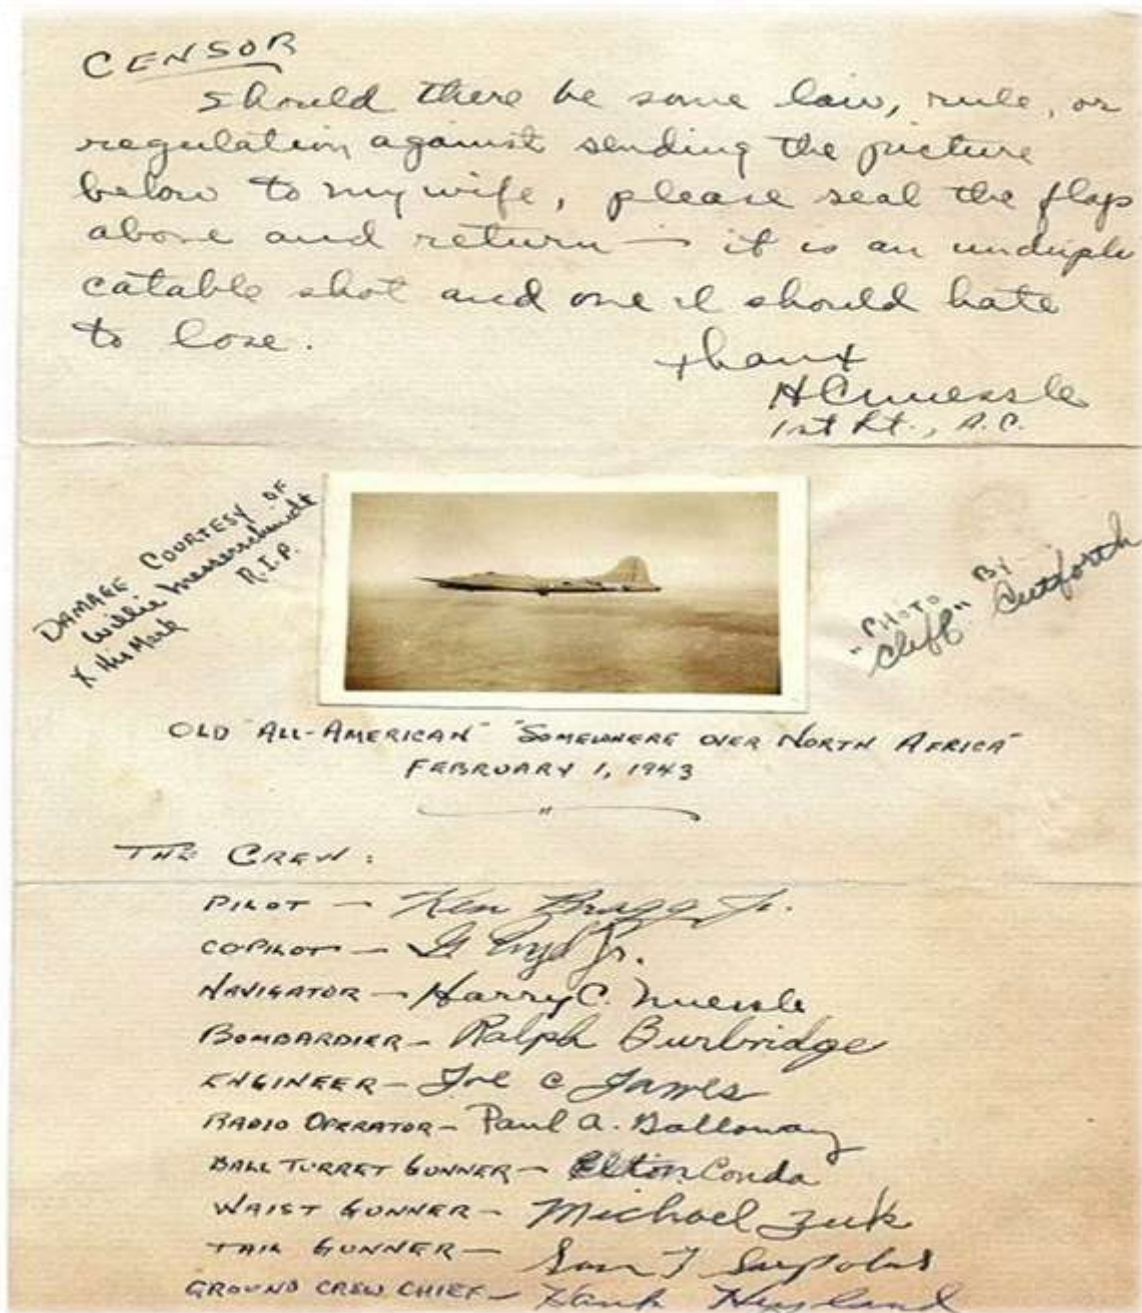 CENSOR
Should there be some law, rule, or
regulation against sending the picture
below to my wife, please seal the flaps
above and return — it is an undupli
catable shot and one I should hate
to lose.
Thanx
HCNuessle
1st Lt., A.C.
DAMAGE COURTESY OF
Willie Messerschmidt
R.I.P.
X His Mark
"PHOTO BY
"Cliff" Cutforth
OLD "ALL-AMERICAN" "SOMEWHERE OVER NORTH AFRICA"
FEBRUARY 1, 1943
"
THE CREW:
PILOT — Ken Bragg Jr.
COPILOT — G Boyd Jr.
NAVIGATOR — Harry C. Nuessle
BOMBARDIER — Ralph Burbridge
ENGINEER — Joe C James
RADIO OPERATOR — Paul A. Galloway
BALL TURRET GUNNER — Elton Conda
WAIST GUNNER — Michael Zuk
TAIL GUNNER — Sam T Sarpolus
GROUND CREW CHIEF — Hank Hyland